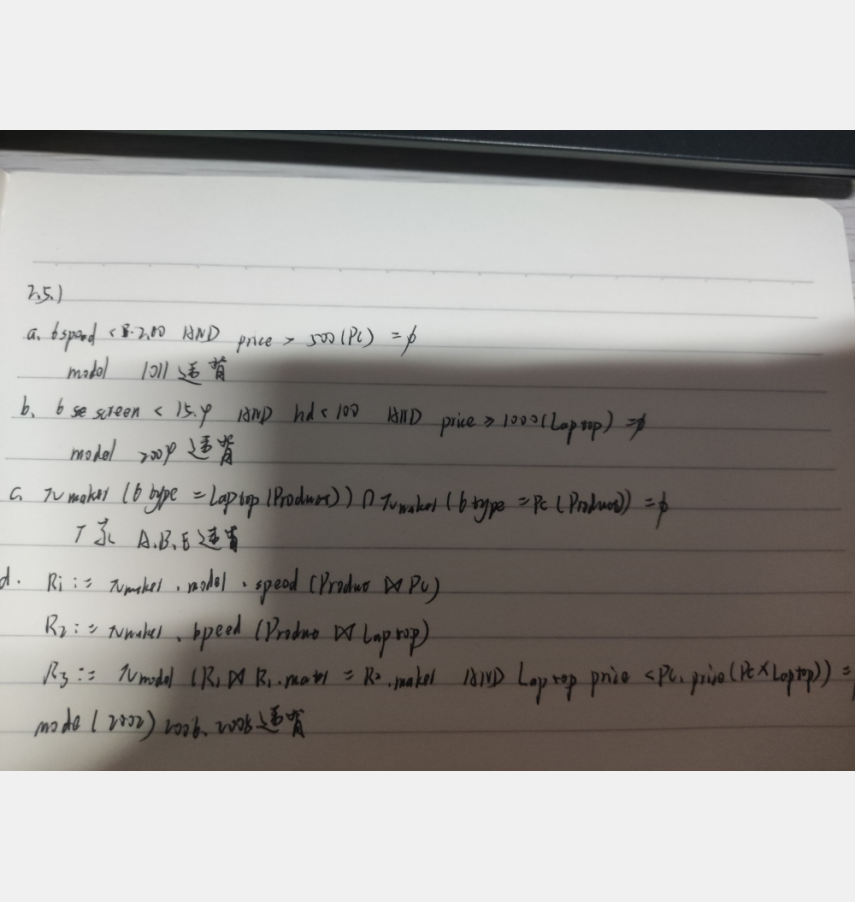 2.5.1
a. σ speed < 2.00 AND price > 500(PC) = φ
model 1011 违背
b. σ screen < 15.4 AND hd < 100 AND price ≥ 1000(Laptop) = φ
model 2004 违背
c. π maker (σ type = Laptop (Product)) ∩ π maker (σ type = PC (Product)) = φ
A.B.E违背
d. R1 := π maker . model . speed (Produc ⋈ PC)
R2 := π maker . speed (Produc ⋈ Laptop)
R3 := π model (R1 ⋈ R1.maker = R2.maker AND Laptop price < PC. price (PC × Laptop)) =
mode (2002) 2006. 2008违背